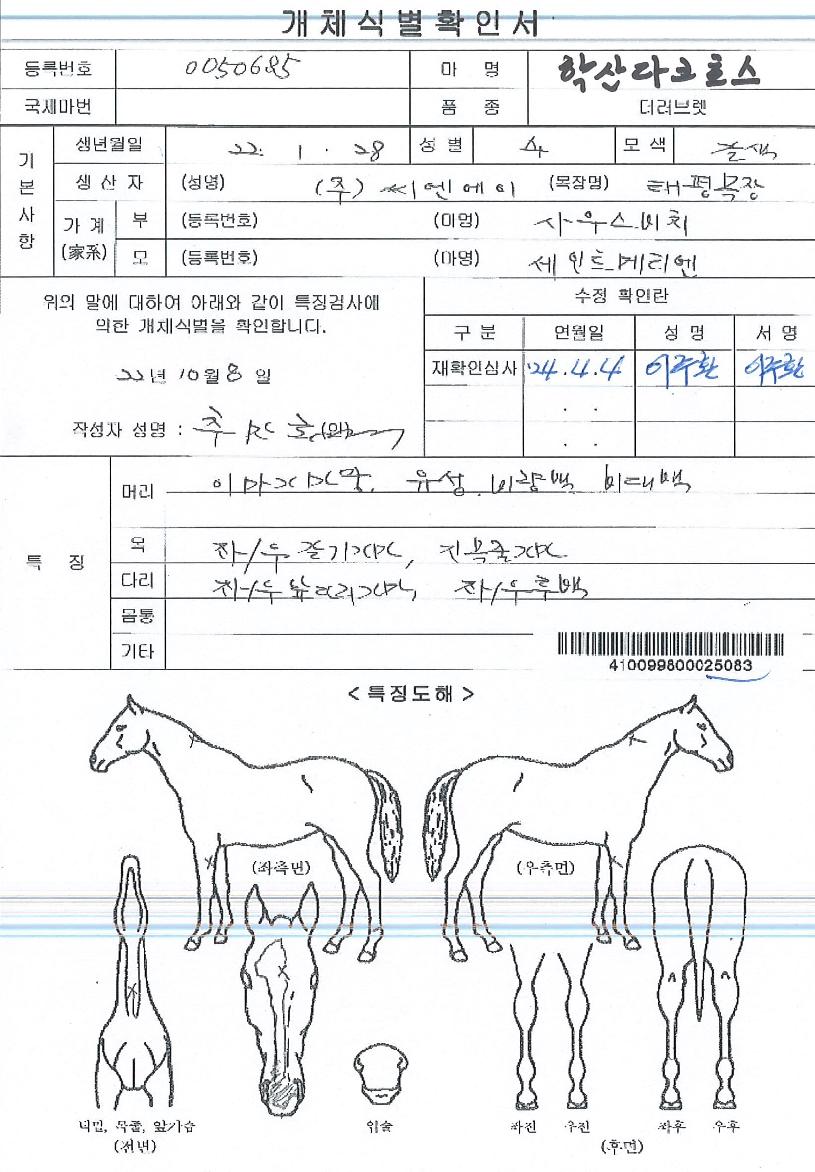 개체식별확인서
등록번호 0050685 마 명 학산다크호스
국제마번 품 종 더러브렛
기본사항
생년월일 22. 1. 28 성별 수 모색
생 산 자 (성명) (주) 씨엔에이 (목장명) 태평목장
가 계 (家系) 부 (등록번호) (마명) 사우스비치
모 (등록번호) (마명) 세인트메리엔
위의 말에 대하여 아래와 같이 특징검사에
의한 개체식별을 확인합니다.
22년 10월 8일
작성자 성명 :
수정 확인란
구 분 연월일 성 명 서 명
재확인심사 '24.4.4 이주환 이주환
. .
. .
특 징
머리 이마가마 유성 비량백 비대백
목 좌/우 줄기가마,
다리 좌/우 앞다리가마, 좌/우후백
몸통
기타
410099800025083
<특징도해>
(좌측면)
(우측면)
턱밑, 목줄, 앞가슴
(전면)
입술
좌전 우전 좌후 우후
(후면)